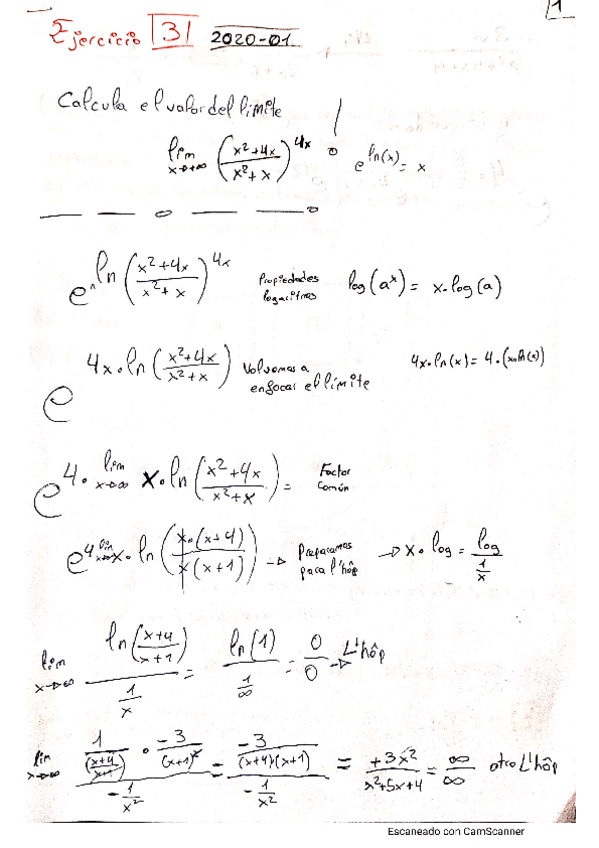 1
Ejercicio 31 2020-01
Calcula el valor del límite
lim x→+∞ ((x²+4x)/(x²+x))^4x e^ln(x) = x
e^ln((x²+4x)/(x²+x))^4x Propiedades logaritmos log(a^x) = x·log(a)
e^4x·ln((x²+4x)/(x²+x)) Volvemos a enfocar el límite 4x·ln(x) = 4·(x·ln(x))
e^4·lim x→∞ x·ln((x²+4x)/(x²+x)) = Factor Común
e^4 lim x→∞ x·ln((x·(x+4))/(x(x+1))) → Preparamos para l'hôp → x·log = log/(1/x)
lim x→∞ ln((x+4)/(x+1))/(1/x) = ln(1)/(1/∞) = 0/0 → L'hôp
lim x→∞ (1/((x+4)/(x+1)) · -3/(x+1)²)/(-1/x²) = (-3/((x+4)(x+1)))/(-1/x²) = +3x²/(x²+5x+4) = ∞/∞ otro L'hôp
Escaneado con CamScanner